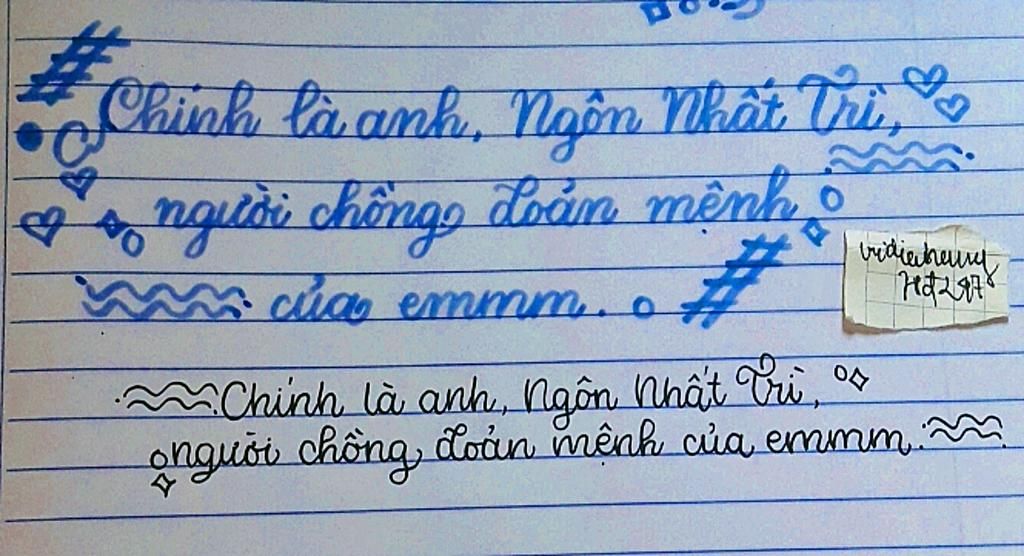 Chính là anh, Ngôn Nhất Trì,
người chồng đoản mệnh
của emmm.
Chính là anh, Ngôn Nhất Trì,
người chồng đoản mệnh của emmm.